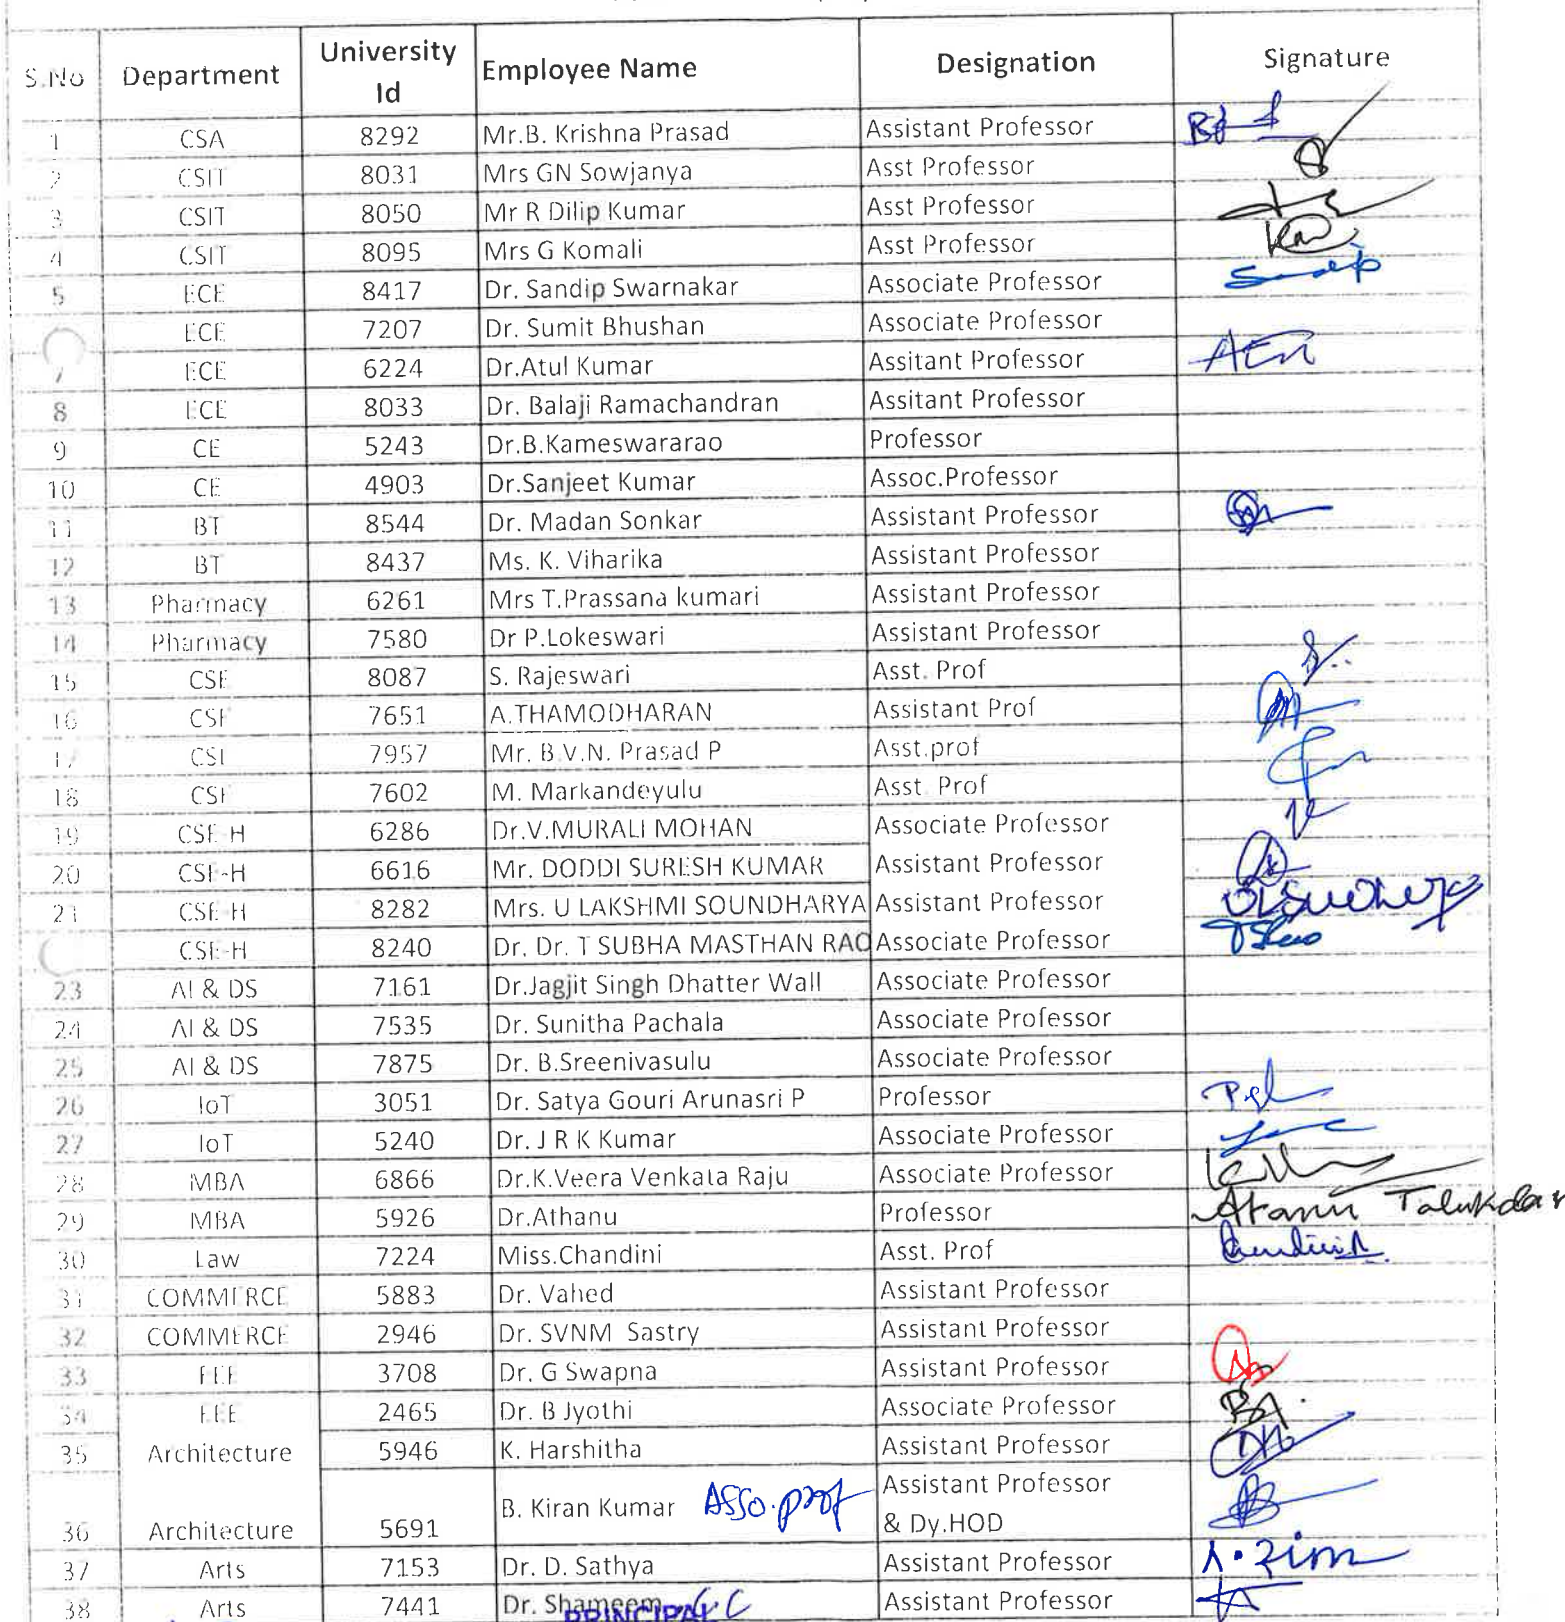 S.No Department University Id Employee Name Designation Signature
1 CSA 8292 Mr.B. Krishna Prasad Assistant Professor
2 CSIT 8031 Mrs GN Sowjanya Asst Professor
3 CSIT 8050 Mr R Dilip Kumar Asst Professor
4 CSIT 8095 Mrs G Komali Asst Professor
5 ECE 8417 Dr. Sandip Swarnakar Associate Professor Sandip
ECE 7207 Dr. Sumit Bhushan Associate Professor
7 ECE 6224 Dr.Atul Kumar Assitant Professor
8 ECE 8033 Dr. Balaji Ramachandran Assitant Professor
9 CE 5243 Dr.B.Kameswararao Professor
10 CE 4903 Dr.Sanjeet Kumar Assoc.Professor
11 BT 8544 Dr. Madan Sonkar Assistant Professor
12 BT 8437 Ms. K. Viharika Assistant Professor
13 Pharmacy 6261 Mrs T.Prassana kumari Assistant Professor
14 Pharmacy 7580 Dr P.Lokeswari Assistant Professor
15 CSE 8087 S. Rajeswari Asst. Prof
16 CSE 7651 A.THAMODHARAN Assistant Prof
17 CSE 7957 Mr. B.V.N. Prasad P Asst.prof
18 CSE 7602 M. Markandeyulu Asst. Prof
19 CSE-H 6286 Dr.V.MURALI MOHAN Associate Professor
20 CSE-H 6616 Mr. DODDI SURESH KUMAR Assistant Professor
21 CSE-H 8282 Mrs. U LAKSHMI SOUNDHARYA Assistant Professor
CSE-H 8240 Dr. Dr. T SUBHA MASTHAN RAO Associate Professor
23 AI & DS 7161 Dr.Jagjit Singh Dhatter Wall Associate Professor
24 AI & DS 7535 Dr. Sunitha Pachala Associate Professor
25 AI & DS 7875 Dr. B.Sreenivasulu Associate Professor
26 IoT 3051 Dr. Satya Gouri Arunasri P Professor
27 IoT 5240 Dr. J R K Kumar Associate Professor
28 MBA 6866 Dr.K.Veera Venkata Raju Associate Professor
29 MBA 5926 Dr.Athanu Professor Atanu Talukdar
30 Law 7224 Miss.Chandini Asst. Prof
31 COMMERCE 5883 Dr. Vahed Assistant Professor
32 COMMERCE 2946 Dr. SVNM Sastry Assistant Professor
33 EEE 3708 Dr. G Swapna Assistant Professor
34 EEE 2465 Dr. B Jyothi Associate Professor
35 Architecture 5946 K. Harshitha Assistant Professor
36 Architecture 5691 B. Kiran Kumar Asso.prof Assistant Professor
& Dy.HOD
37 Arts 7153 Dr. D. Sathya Assistant Professor
38 Arts 7441 Dr. Shameem Assistant Professor
PRINCIPAL